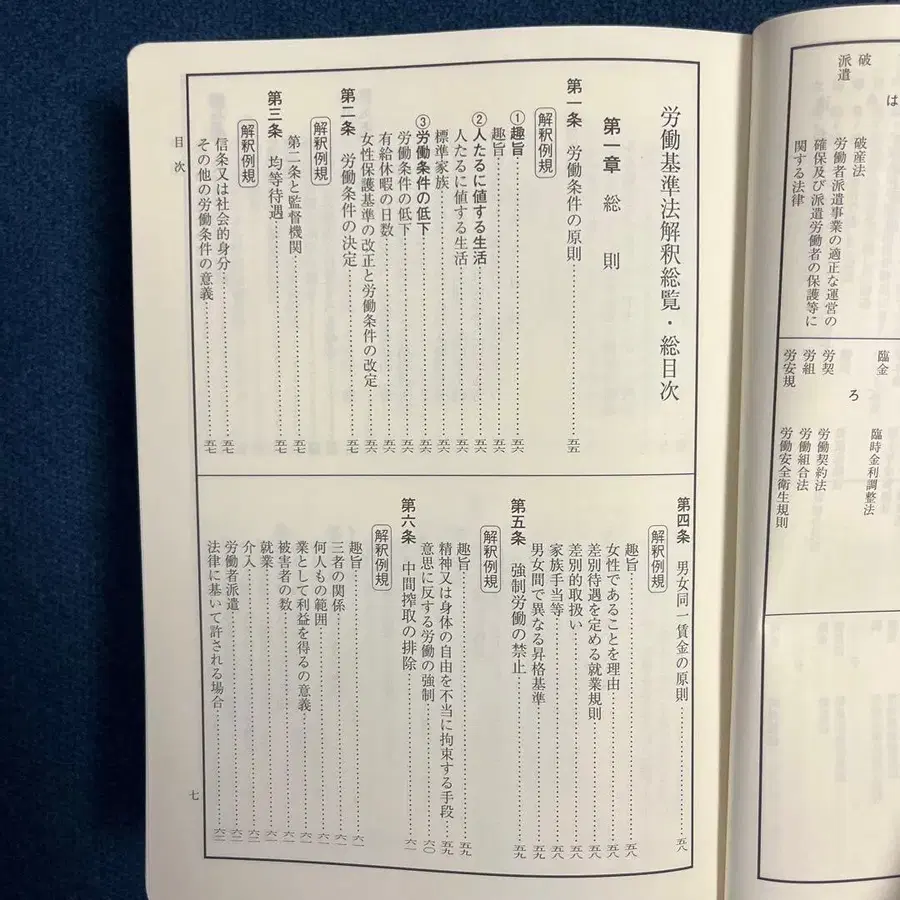 破
派遣
は
破産法
労働者派遣事業の適正な運営の
確保及び派遣労働者の保護等に
関する法律
臨金
ろ
労契
労組
労安規
臨時金利調整法
労働契約法
労働組合法
労働安全衛生規則
労働基準法解釈総覧・総目次
第一章 総則
第一条 労働条件の原則……五五
解釈例規
①趣旨……五六
趣旨……五六
②人たるに値する生活……五六
人たるに値する生活……五六
標準家族……五六
③労働条件の低下……五六
労働条件の低下……五六
有給休暇の日数……五六
女性保護基準の改正と労働条件の改定……五六
第二条 労働条件の決定……五七
解釈例規
第二条と監督機関……五七
第三条 均等待遇……五七
解釈例規
信条又は社会的身分……五七
その他の労働条件の意義……五七
第四条 男女同一賃金の原則……五八
解釈例規
趣旨……五八
女性であることを理由……五八
差別待遇を定める就業規則……五八
差別的取扱い……五八
家族手当等……五八
男女間で異なる昇格基準……五九
第五条 強制労働の禁止……五九
解釈例規
趣旨……五九
精神又は身体の自由を不当に拘束する手段……五九
意思に反する労働の強制……六〇
第六条 中間搾取の排除……六一
解釈例規
趣旨……六一
三者の関係……六一
何人もの範囲……六一
業として利益を得るの意義……六一
被害者の数……六一
就業……六一
介入……六二
労働者派遣……六二
法律に基いて許される場合……六二
目次
七